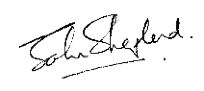 John Shepherd.